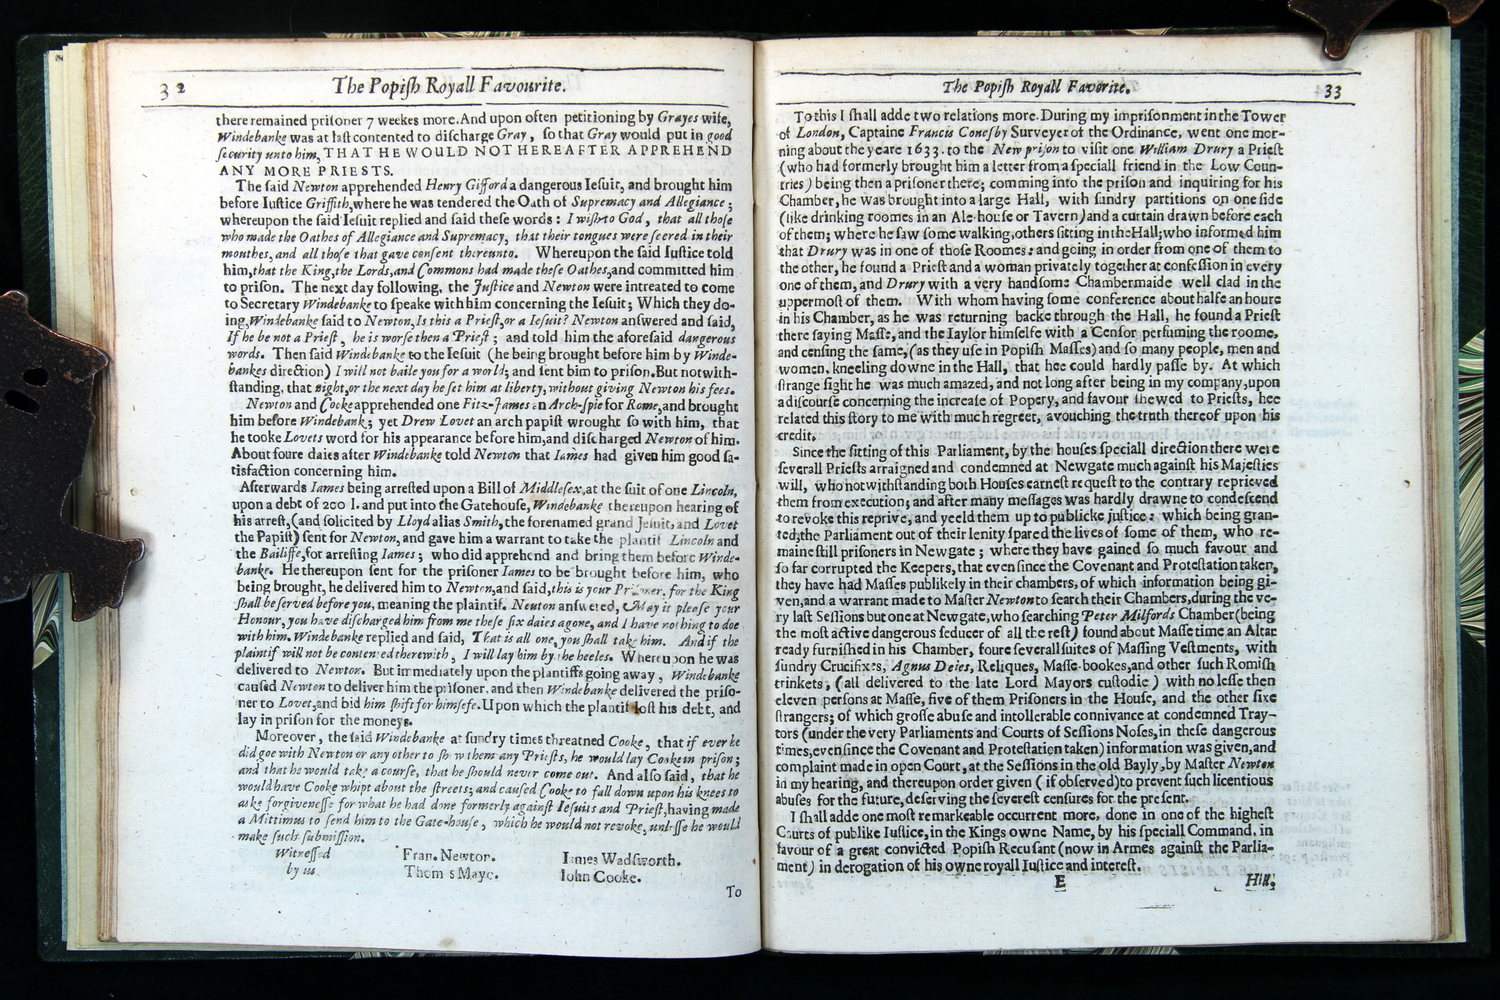 32
The Popish Royall Favourite.
there remained prisoner 7 weekes more. And upon often petitioning by Grayes wife,
Windebanke was at last contented to discharge Gray, so that Gray would put in good
security unto him, THAT HE WOULD NOT HEREAFTER APPREHEND
ANY MORE PRIESTS.
The said Newton apprehended Henry Gifford a dangerous Iesuit, and brought him
before Iustice Griffith, where he was tendered the Oath of Supremacy and Allegiance;
whereupon the said Iesuit replied and said these words: I wish to God, that all those
who made the Oathes of Allegiance and Supremacy, that their tongues were seered in their
mouthes, and all those that gave consent thereunto. Whereupon the said Iustice told
him, that the King, the Lords, and Commons had made these Oathes, and committed him
to prison. The next day following, the Justice and Newton were intreated to come
to Secretary Windebanke to speake with him concerning the Iesuit; Which they do-
ing, Windebanke said to Newton, Is this a Priest, or a Iesuit? Newton answered and said,
If he be not a Priest, he is worse then a Priest; and told him the aforesaid dangerous
words. Then said Windebanke to the Iesuit (he being brought before him by Winde-
bankes direction) I will not baile you for a world; and sent him to prison. But notwith-
standing, that night, or the next day he set him at liberty, without giving Newton his fees.
Newton and Cooke apprehended one Fitz-James an Arch-spie for Rome, and brought
him before Windebank; yet Drew Lovet an arch papist wrought so with him, that
he tooke Lovets word for his appearance before him, and discharged Newton of him.
About foure daies after Windebanke told Newton that Iames had given him good sa-
tisfaction concerning him.
Afterwards Iames being arrested upon a Bill of Middlesex, at the suit of one Lincoln,
upon a debt of 200 l. and put into the Gatehouse, Windebanke thereupon hearing of
his arrest, (and solicited by Lloyd alias Smith, the forenamed grand Jesuit, and Lovet
the Papist) sent for Newton, and gave him a warrant to take the plantif Lincoln and
the Bailiffe, for arresting Iames; who did apprehend and bring them before Winde-
banke. He thereupon sent for the prisoner Iames to be brought before him, who
being brought, he delivered him to Newton, and said, this is your Prisoner, for the King
shall be served before you, meaning the plaintif. Newton answered, May it please your
Honour, you have discharged him from me these six daies agone, and I have nothing to doe
with him. Windebanke replied and said, That is all one, you shall take him. And if the
plaintif will not be contented therewith, I will lay him by the heeles. Whereupon he was
delivered to Newton. But immediately upon the plantiffs going away, Windebanke
caused Newton to deliver him the prisoner, and then Windebanke delivered the priso-
ner to Lovet, and bid him shift for himsefe. Upon which the plantif lost his debt, and
lay in prison for the moneys.
Moreover, the said Windebanke at sundry times threatned Cooke, that if ever he
did goe with Newton or any other to shew them any Priests, he would lay Cooke in prison;
and that he would take a course, that he should never come out. And also said, that he
would have Cooke whipt about the streets; and caused Cooke to fall down upon his knees to
aske forgivenesse for what he had done formerly against Iesuits and Priest, having made
a Mittimus to send him to the Gate-house, which he would not revoke, unlesse he would
make such submission.
Witnessed
by us
Fran. Newton.
Thomas Maye.
Iames Wadsworth.
Iohn Cooke.
To
The Popish Royall Favorite.
33
To this I shall adde two relations more. During my imprisonment in the Tower
of London, Captaine Francis Conesby Surveyer of the Ordinance, went one mor-
ning about the yeare 1633. to the New prison to visit one William Drury a Priest
(who had formerly brought him a letter from a speciall friend in the Low Coun-
tries) being then a prisoner there; comming into the prison and inquiring for his
Chamber, he was brought into a large Hall, with sundry partitions on one side
(like drinking roomes in an Ale-house or Tavern) and a curtain drawn before each
of them; where he saw some walking, others sitting in the Hall; who informed him
that Drury was in one of those Roomes: and going in order from one of them to
the other, he found a Priest and a woman privately together at confession in every
one of them, and Drury with a very handsome Chambermaide well clad in the
uppermost of them. With whom having some conference about halfe an houre
in his Chamber, as he was returning backe through the Hall, he found a Priest
there saying Masse, and the Iaylor himselfe with a Censor perfuming the roome,
and censing the same, (as they use in Popish Masses) and so many people, men and
women, kneeling downe in the Hall, that hee could hardly passe by. At which
strange sight he was much amazed, and not long after being in my company, upon
a discourse concerning the increase of Popery, and favour shewed to Priests, hee
related this story to me with much regreet, avouching the truth thereof upon his
credit.
Since the sitting of this Parliament, by the houses speciall direction there were
severall Priests arraigned and condemned at Newgate much against his Majesties
will, who notwithstanding both Houses earnest request to the contrary reprieved
them from execution; and after many messages was hardly drawne to condescend
to revoke this reprive, and yeeld them up to publicke justice: which being gran-
ted, the Parliament out of their lenity spared the lives of some of them, who re-
maine still prisoners in Newgate; where they have gained so much favour and
so far corrupted the Keepers, that even since the Covenant and Protestation taken,
they have had Masses publikely in their chambers, of which information being gi-
ven, and a warrant made to Master Newton to search their Chambers, during the ve-
ry last Sessions but one at Newgate, who searching Peter Milfords Chamber (being
the most active dangerous seducer of all the rest) found about Masse time an Altar
ready furnished in his Chamber, foure severall suites of Massing Vestments, with
sundry Crucifixes, Agnus Deies, Reliques, Masse-bookes, and other such Romish
trinkets, (all delivered to the late Lord Mayors custodie) with no lesse then
eleven persons at Masse, five of them Prisoners in the House, and the other sixe
strangers; of which grosse abuse and intollerable connivance at condemned Tray-
tors (under the very Parliaments and Courts of Sessions Noses, in these dangerous
times, even since the Covenant and Protestation taken) information was given, and
complaint made in open Court, at the Sessions in the old Bayly, by Master Newton
in my hearing, and thereupon order given (if observed) to prevent such licentious
abuses for the future, deserving the severest censures for the present.
I shall adde one most remarkeable occurrent more, done in one of the highest
Courts of publike Iustice, in the Kings owne Name, by his speciall Command, in
favour of a great convicted Popish Recusant (now in Armes against the Parlia-
ment) in derogation of his owne royall Iustice and interest.
E
Hill;